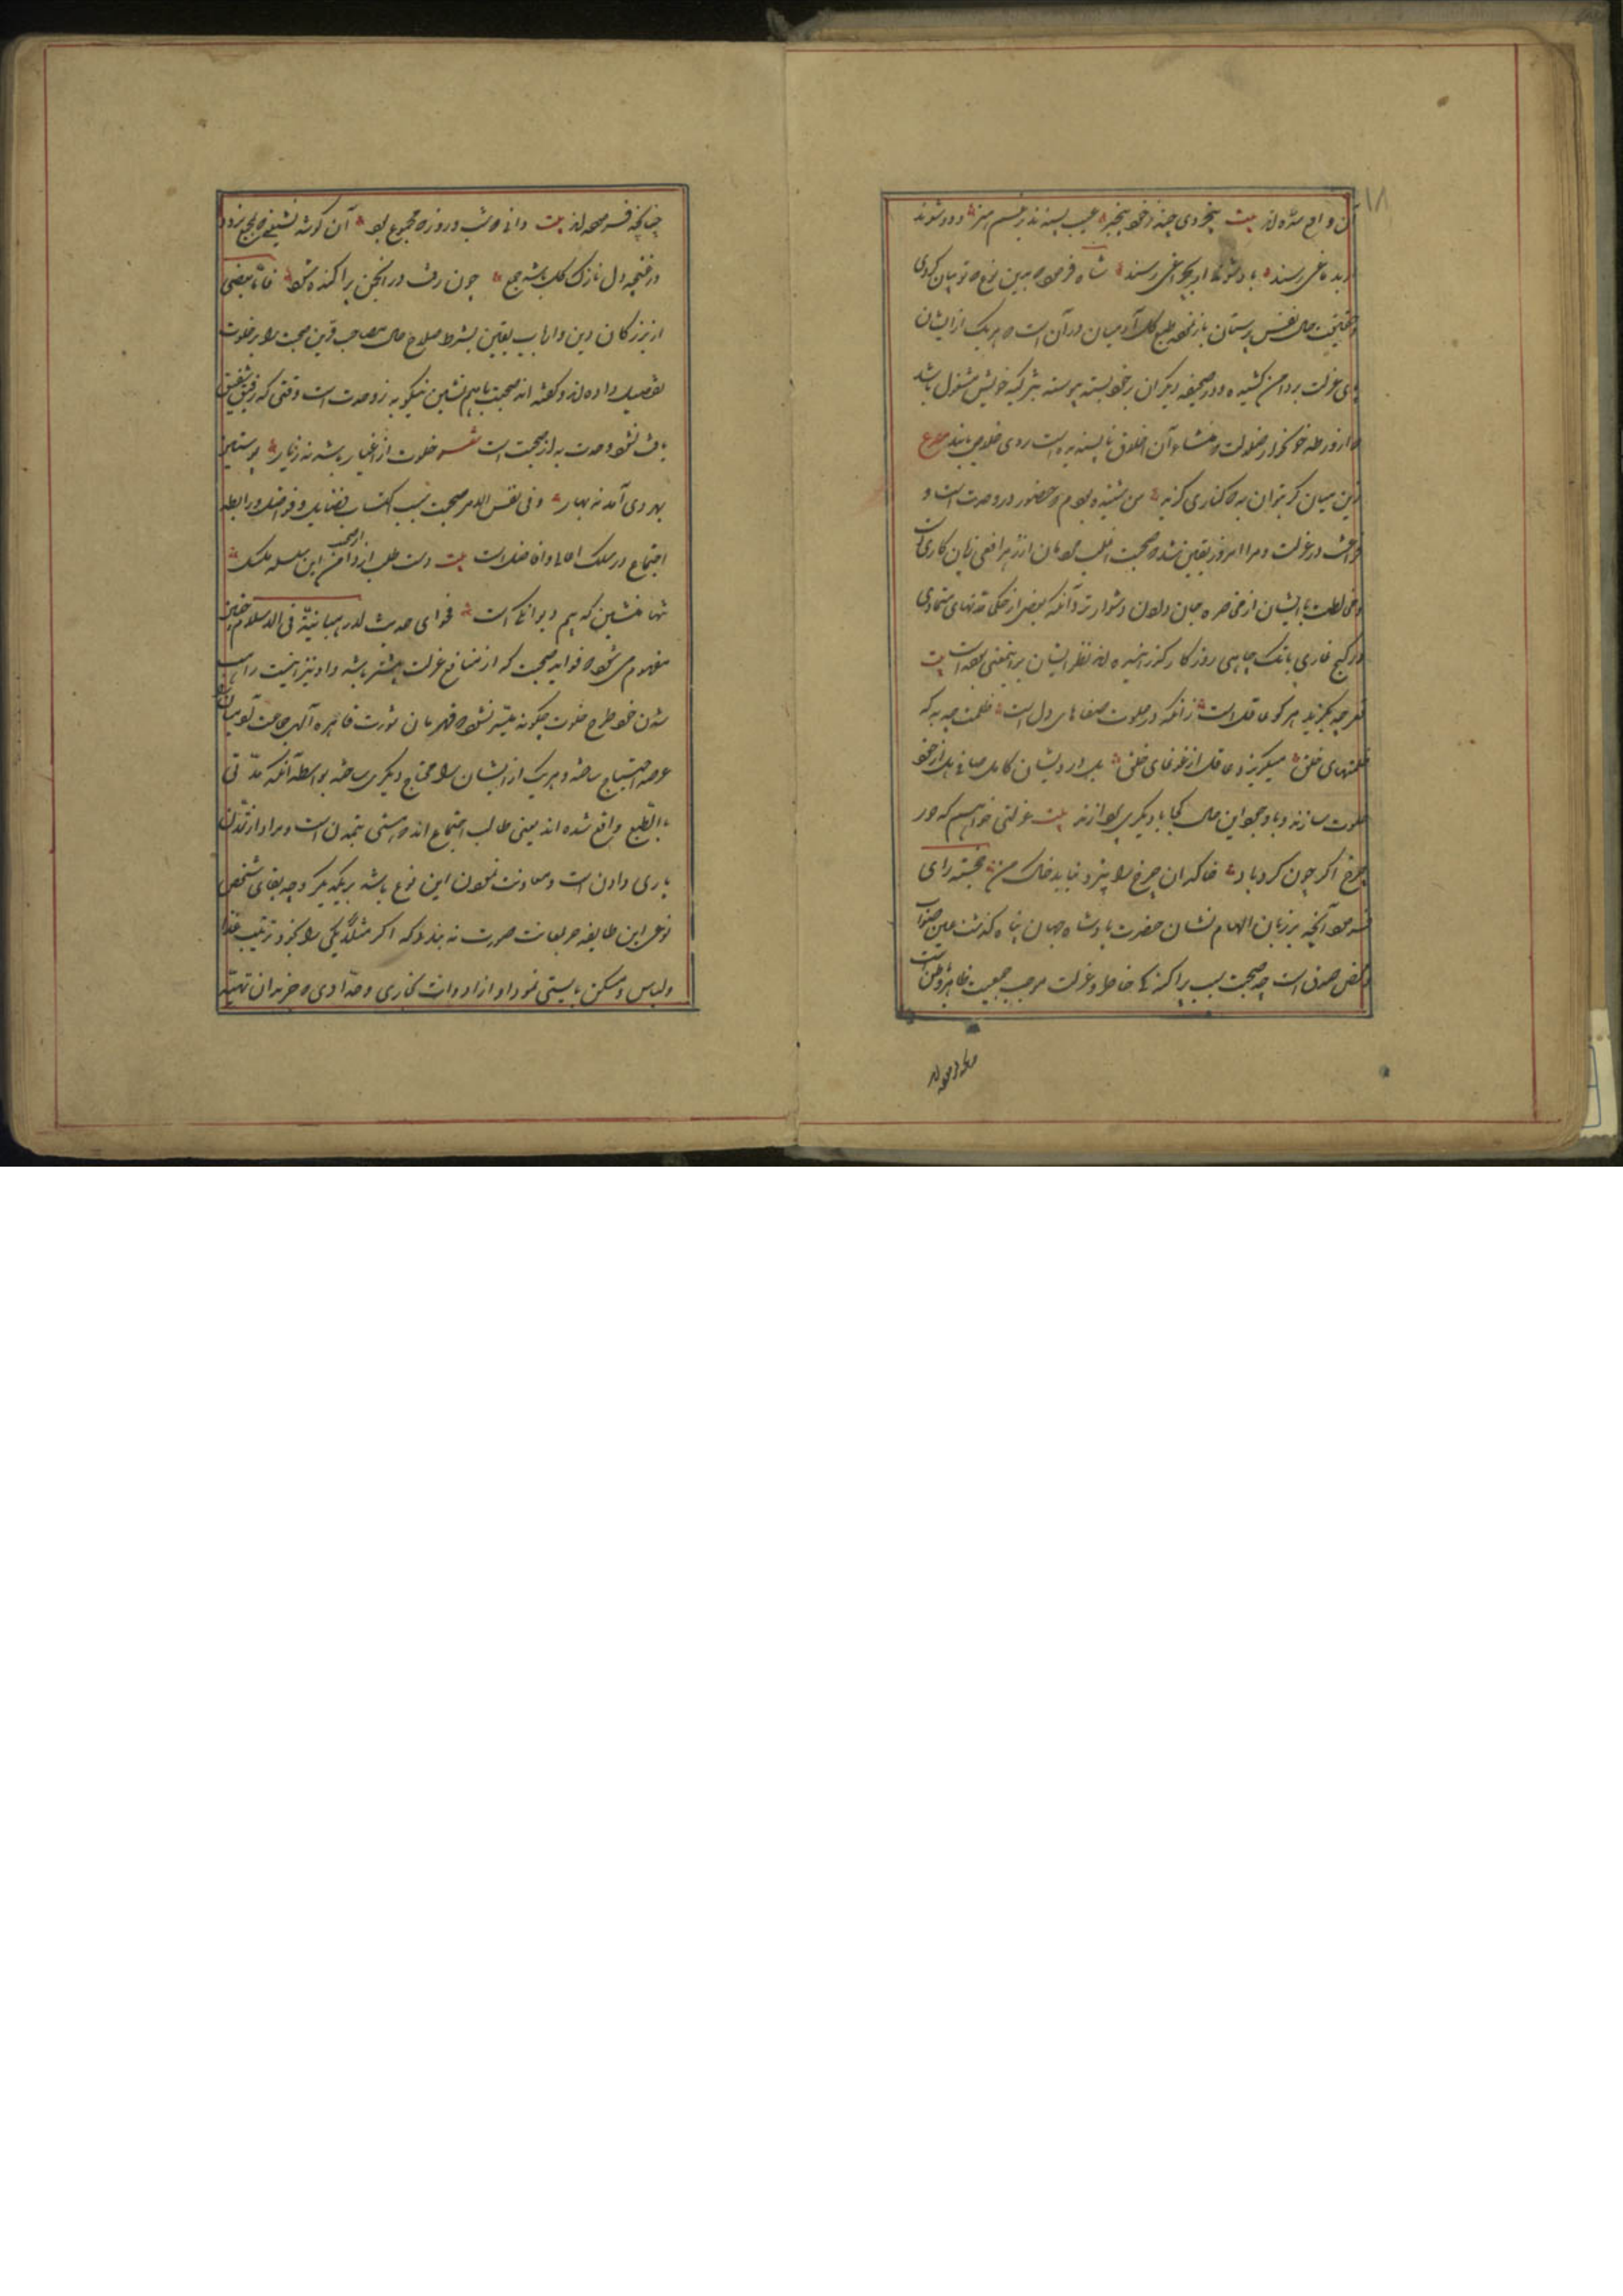 ۱۸
آن واقع شده‌اند بیت بیخردی چند ز خود بیخبر عیب پسندند برغم هنر دود شوند
ار بدماغی رسند باد شوند ار بچراغی رسند شاه فرمود بدین نوع که تو بیان کردی
و حقیقت حال نفس پرستان باز نمودی طبع کل آدمیان در آن است که هر یک از ایشان
پای عزلت بردامن کشیده و در صحبت دیگران بر خود بسته پیوسته بتزکیه خویش مشغول باشد
که از ورطه خونخوار ضلالت که منشاء آن اخلاق ناپسندیده است روی خلاص یابند مصرع
زین میان گر بتوان به که کناری گیرند من شنیده بودم که حضور در وحدت است و
فراغت در عزلت و مرا امروز یقین شد که صحبت اغلب مردمان از زهر افعی زیان کاری است
و مخالطت با ایشان از مخاطره جان دادن دشوارتر و آنکه بعضی از حکما مدتهای متمادی
در کنج غاری یا تک چاهی روزگار گذرانیده‌اند نظر ایشان بر این معنی بوده است بیت
قعر چه بگزید هر کو عاقل است زانکه در خلوت صفاهای دل است ظلمت چه به که
ظلمتهای خلق میگریزد عاقل از غوغای خلق بلکه درویشان کامل صافی دل از خود
خلوت سازند و با وجود این حال کجا با دیگری پردازند بیت عزلتی خواهم که دور
چرخ اگر چون گردباد خاکدان چرخ را بیزد نیابد خاک من خجسته رای
فرمود آنچه بر زبان الهام نشان حضرت پادشاه جهان پناه گذشت عین صواب
و محض صدق است چه صحبت سبب پراکندگی خاطر و عزلت موجب جمعیت ظاهر و باطن است
چنانچه فرموده‌اند بیت دانی که شب و روز که مجموع بود آن گوشه نشینی که بجمع نرود
در غنچه دل نازک گل باشد جمع چون رفت در انجمن پراکنده شود فاما بعضی
از بزرگان دین و ارباب یقین بشرط صلاح حال مصاحب و قرین صحبت را بر خلوت
تفضیل داده‌اند و گفته‌اند صحبت با هم نشین نیکو به ز وحدت است و وقتی که رفیق شفیق
یافت نشود وحدت به از صحبت است شعر خلوت از اغیار باید نه ز یار پوستین
بهر دی آمد نه بهار و فی نفس الامر صحبت سبب اکتساب فضایل و فواضل و رابطه
اجتماع در سلک اعالی و افاضل است بیت دست طلب از دامن این سلسله مگسل
تنها منشین که بیم دیوانگی است فحوای حدیث لا رهبانیة فی الاسلام چنین
مفهوم می شود که فواید صحبت که از منافع عزلت بیشتر باشد و او نیز این‌ست راهب
شدن خود طرح خلوت چگونه میسر شود که قهرمان قدرت قاهره الهی جماعت آدمیان را
عرصه احتیاج ساخته و هر یک از ایشان را محتاج دیگری ساخته بواسطه آنکه مدنی
بالطبع واقع شده‌اند یعنی طالب اجتماع اند که مسمی بتمدن است و مراد از تمدن
یاری دادن است و معاونت نمودن این نوع باشد بر یکدیگر و چه بقای شخص
نوعی این طایفه جز بمعاونت صورت نه بندد که اگر مثلاً یکی را بخود ترتیب غذا
و لباس و مسکن بایستی نمود او از ادوات نجاری و حدادی که جز بدان تهیه